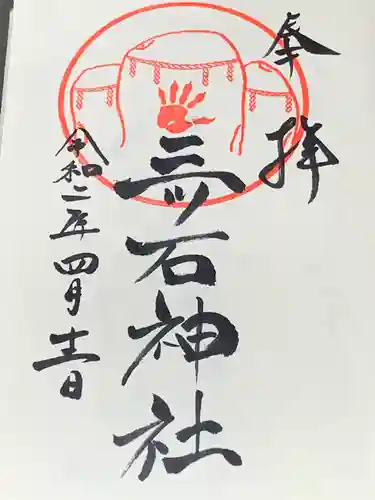 奉拝
三ツ石神社
令和二年四月
日